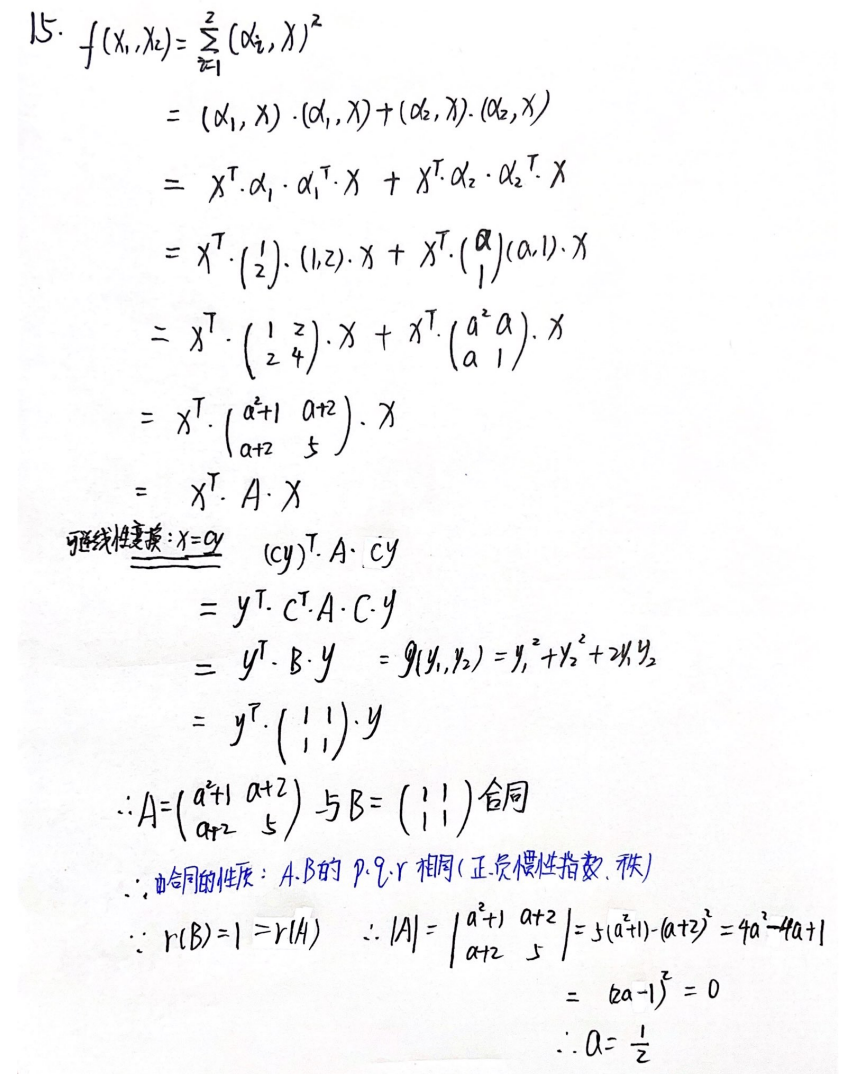 15. f(x₁,x₂)= Σ²ᵢ₌₁ (αᵢ, X)²
= (α₁, X)·(α₁, X)+(α₂, X)·(α₂, X)
= Xᵀ·α₁·α₁ᵀ·X + Xᵀ·α₂·α₂ᵀ·X
= Xᵀ·(1 2)·(1,2)·X + Xᵀ·(a 1)(a,1)·X
= Xᵀ·(1 2 2 4)·X + Xᵀ·(a² a a 1)·X
= Xᵀ·(a²+1 a+2 a+2 5)·X
= Xᵀ·A·X
可逆线性变换:x=cy (cy)ᵀ·A·cy
= yᵀ·Cᵀ·A·C·y
= yᵀ·B·y = g(y₁,y₂) = y₁²+y₂²+2y₁y₂
= yᵀ·(1 1 1 1)·y
∴A=(a²+1 a+2 a+2 5) 与B=(1 1 1 1)合同
∴由合同的性质:A.B的 p.q.r 相同(正.负惯性指数、秩)
∵ r(B)=1=r(A) ∴|A|=|a²+1 a+2 a+2 5|=5(a²+1)-(a+2)²=4a²-4a+1
= (2a-1)²=0
∴a=1/2